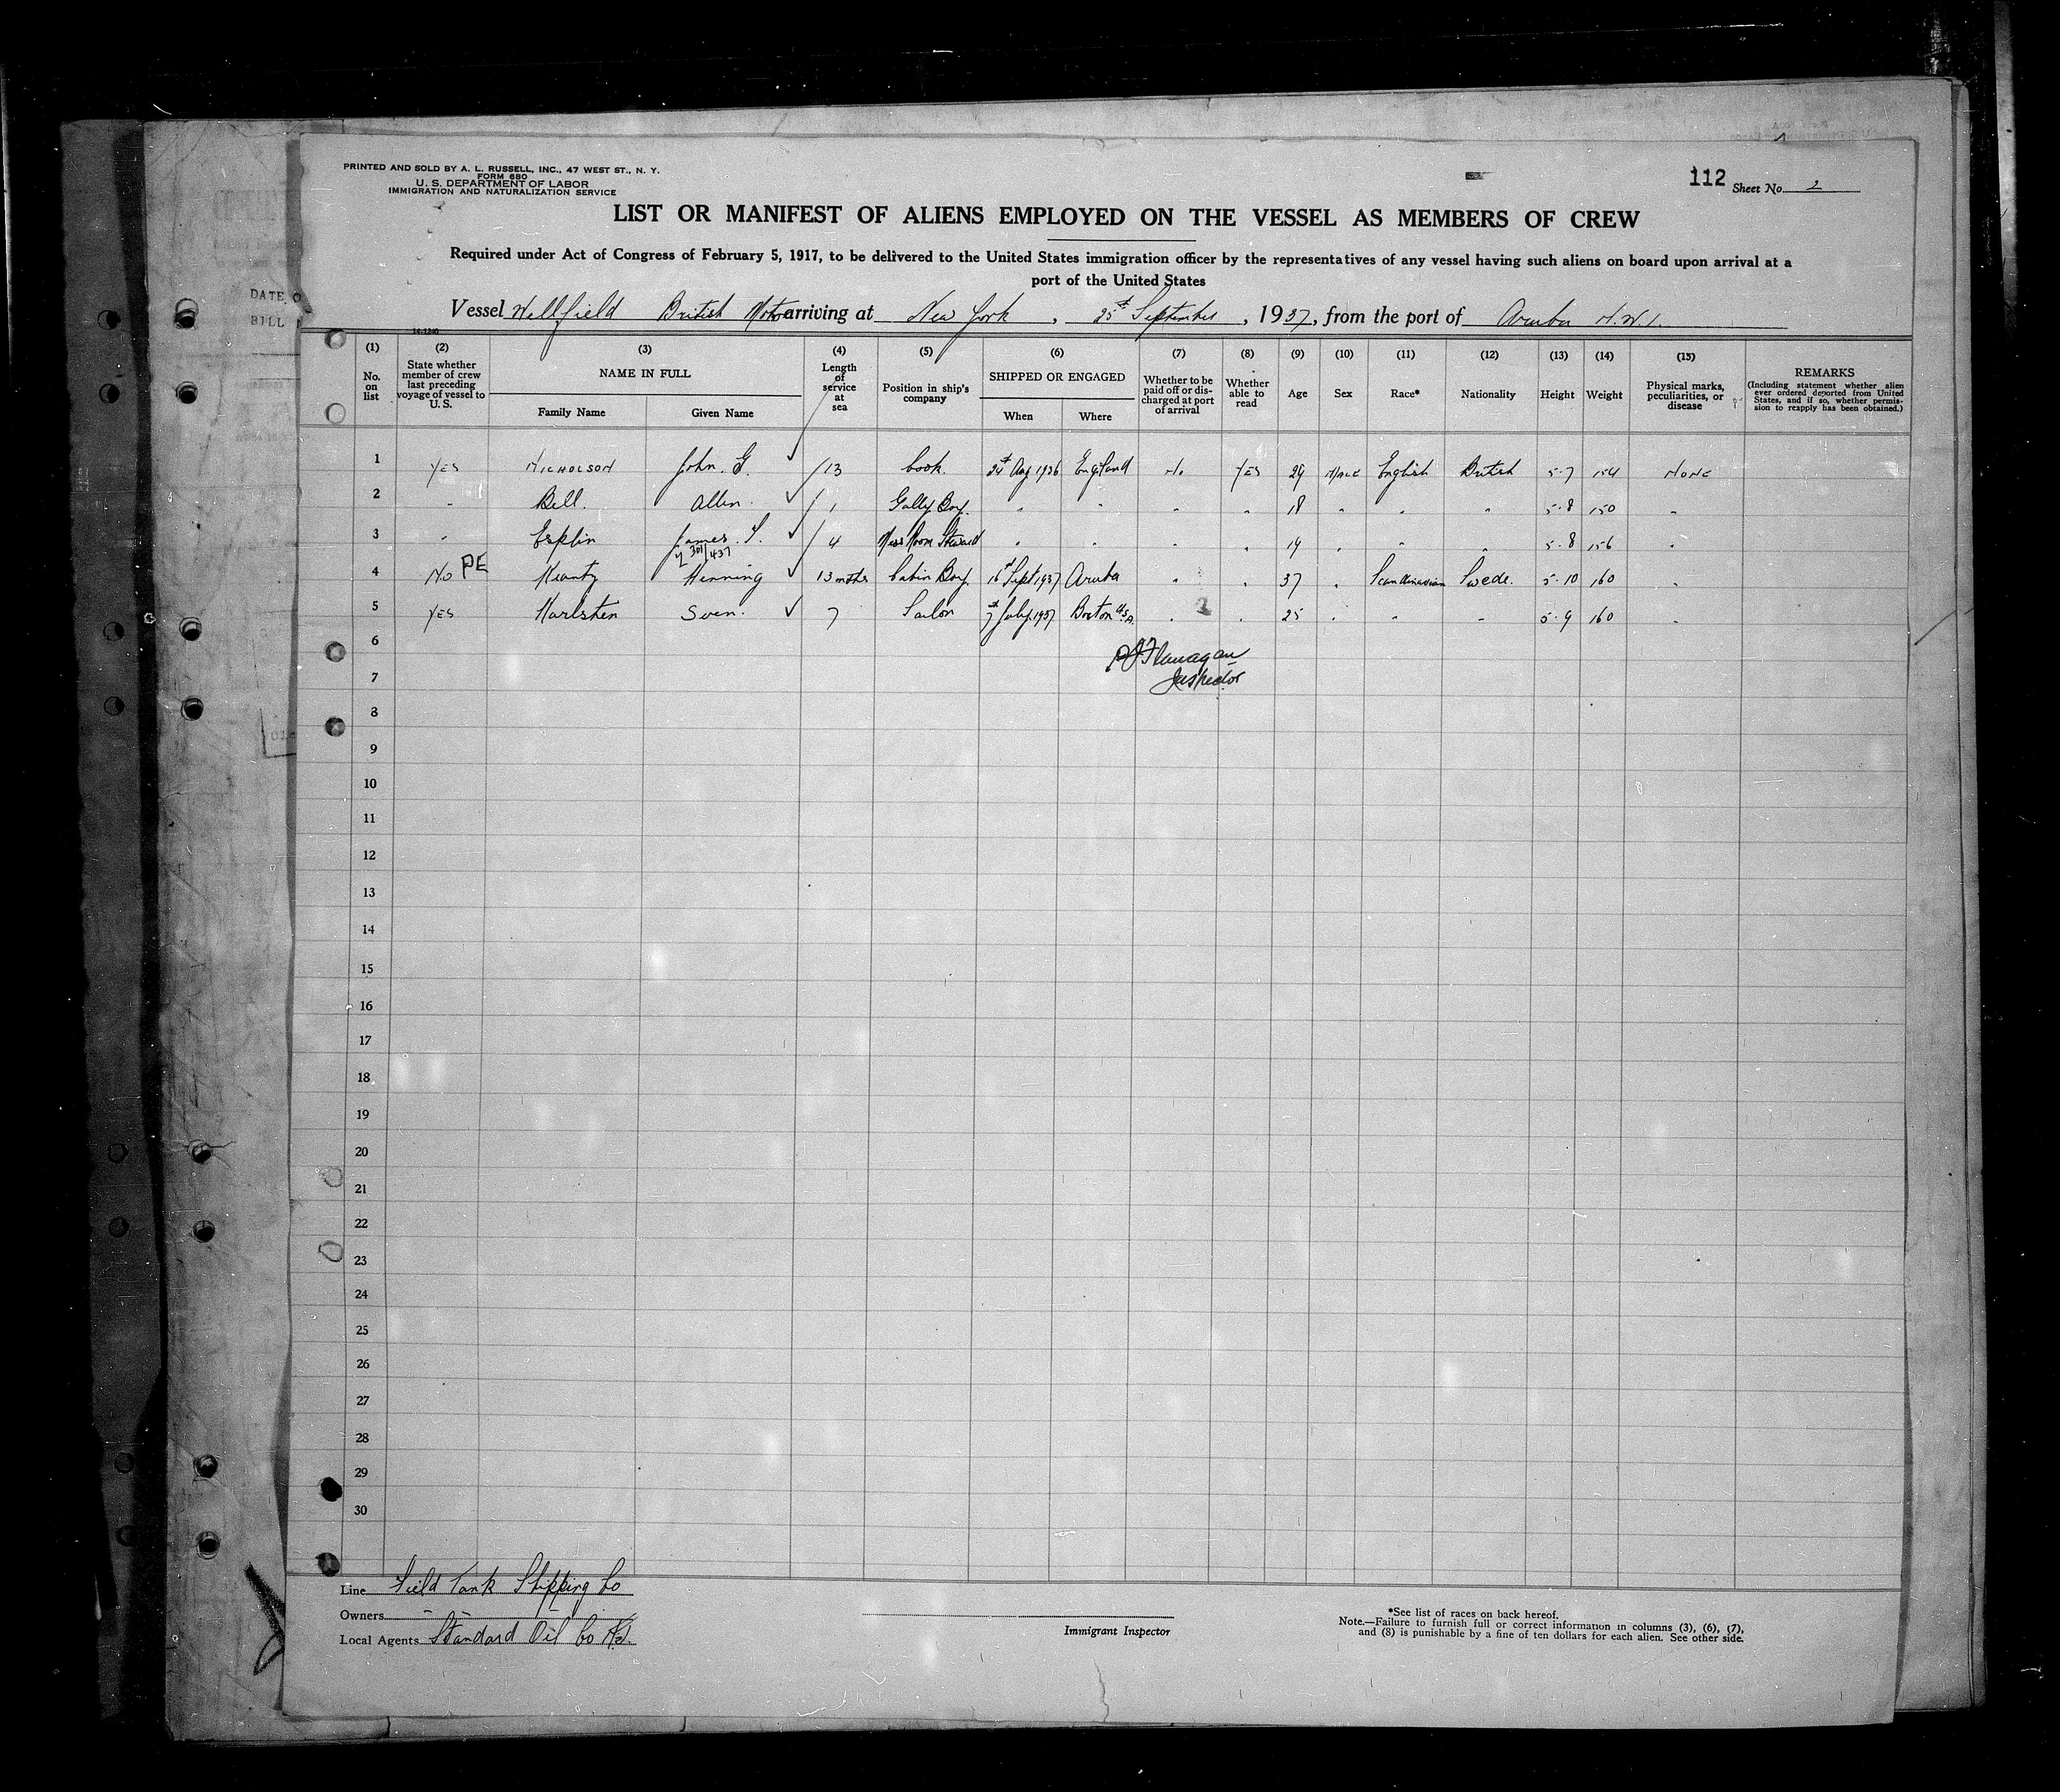 PRINTED AND SOLD BY A. L. RUSSELL, INC., 47 WEST ST., N. Y.
FORM 680
U. S. DEPARTMENT OF LABOR
IMMIGRATION AND NATURALIZATION SERVICE
112 Sheet No. 2
LIST OR MANIFEST OF ALIENS EMPLOYED ON THE VESSEL AS MEMBERS OF CREW
Required under Act of Congress of February 5, 1917, to be delivered to the United States immigration officer by the representatives of any vessel having such aliens on board upon arrival at a
port of the United States
Vessel Wellfield British Motor arriving at New York, 25th September, 1937, from the port of Aruba N.W.I.
14-1240
(1) No. on list
(2) State whether member of crew last preceding voyage of vessel to U. S.
(3) NAME IN FULL Family Name Given Name
(4) Length of service at sea
(5) Position in ship's company
(6) SHIPPED OR ENGAGED When Where
(7) Whether to be paid off or discharged at port of arrival
(8) Whether able to read
(9) Age
(10) Sex
(11) Race*
(12) Nationality
(13) Height
(14) Weight
(15) Physical marks, peculiarities, or disease
REMARKS (Including statement whether alien ever ordered deported from United States, and if so, whether permission to reapply has been obtained.)
1 YES NICHOLSON John. G. 13 Cook 24th Aug 1936 England No YES 29 MALE English British 5-7 154 NONE
2 " Bell. Allen. 1 Gally Boy. " " " " 18 " " " 5-8 150 "
3 " Esplin James. S. 4 Mess Room Steward " " " " 19 " " " 5-8 156 "
301/437
4 No PE Henning 13 mths Cabin Boy. 16th Sept 1937 Aruba " " 37 " Scandinavian Swede. 5-10 160 "
5 YES Karlsten Sven. 7 Sailor 7th July 1937 Boston U.S.A. " " 25 " " " 5-9 160 "
6
PJ Flanagan
Inspector
7
8
9
10
11
12
13
14
15
16
17
18
19
20
21
22
23
24
25
26
27
28
29
30
Line Field Tank Shipping Co
Owners " " "
Local Agents Standard Oil Co N.J.
Immigrant Inspector
*See list of races on back hereof.
Note.—Failure to furnish full or correct information in columns (3), (6), (7),
and (8) is punishable by a fine of ten dollars for each alien. See other side.
DATE O
BILL